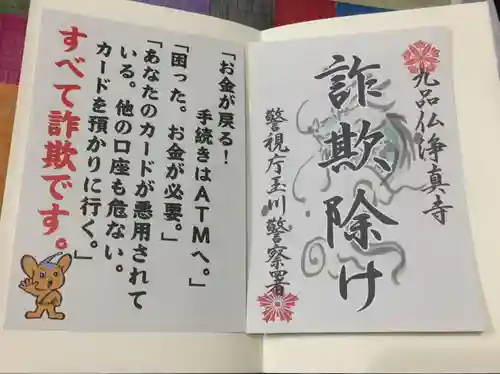 九品仏浄真寺
詐欺除け
警視庁玉川警察署
「お金が戻る!
手続きはATMへ。」
「困った。お金が必要。」
「あなたのカードが悪用されて
いる。他の口座も危ない。
カードを預かりに行く。」
すべて詐欺です。